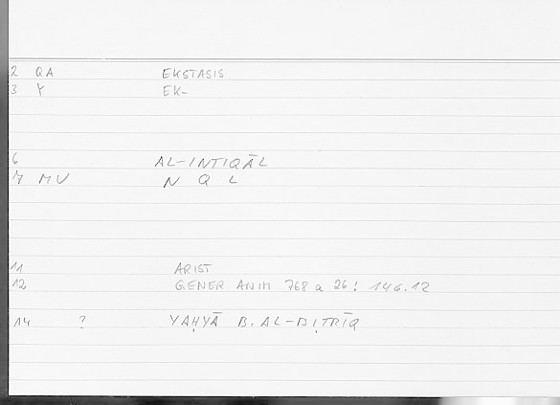 2 QA EKSTASIS
3 Y EK-
6 AL-INTIQĀL
7 MV N Q L
11 ARIST
12 GENER ANIM 768 a 26 : 146.12
14 ? YAḤYĀ B. AL-BIṬRĪQ